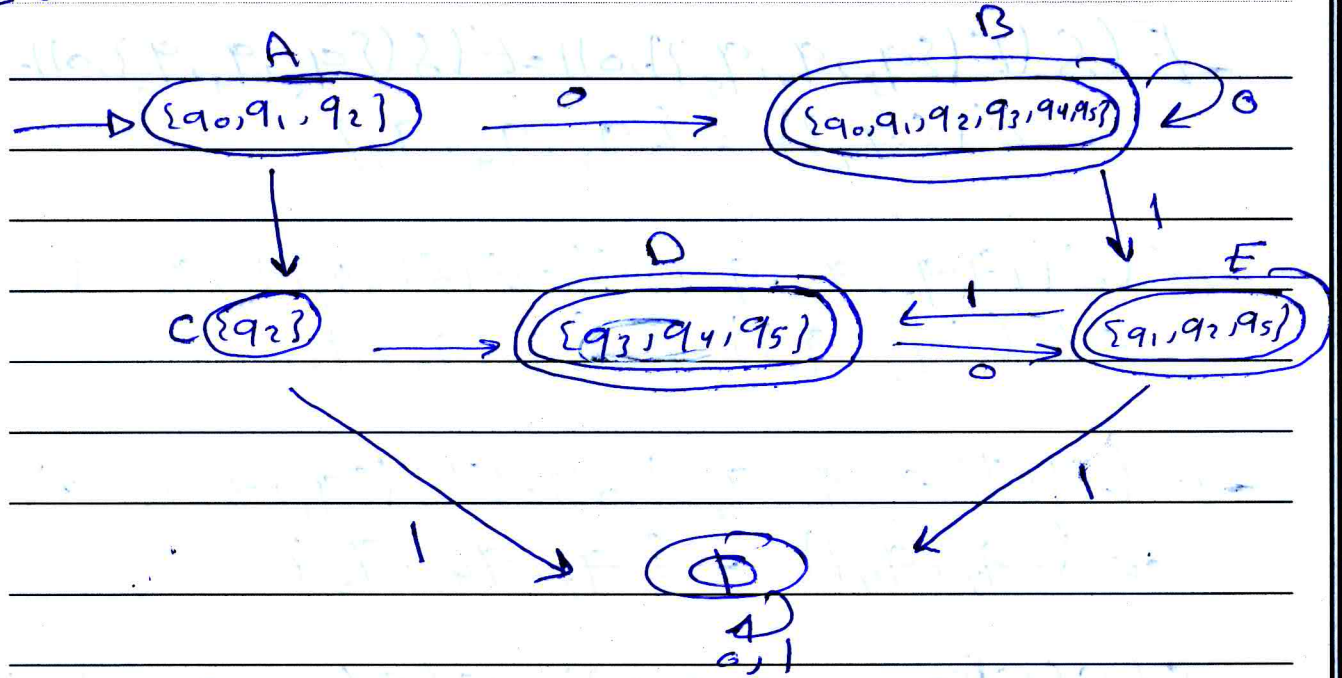 A
B
{q0,q1,q2}
0
{q0,q1,q2,q3,q4,q5}
0
1
D
E
C {q2}
{q3,q4,q5}
1
0
{q1,q2,q5}
1
1
Φ
0,1